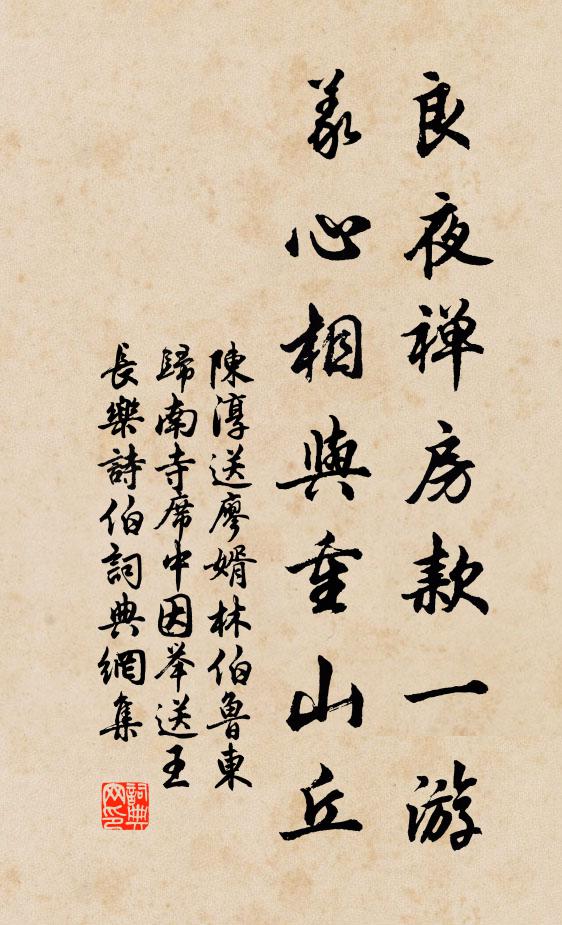 良夜禅房款一游
義心相與重山丘
陳淳送廖婿林伯魯東
歸南寺席中因举送王
長樂詩伯詞典網集
詞典网印